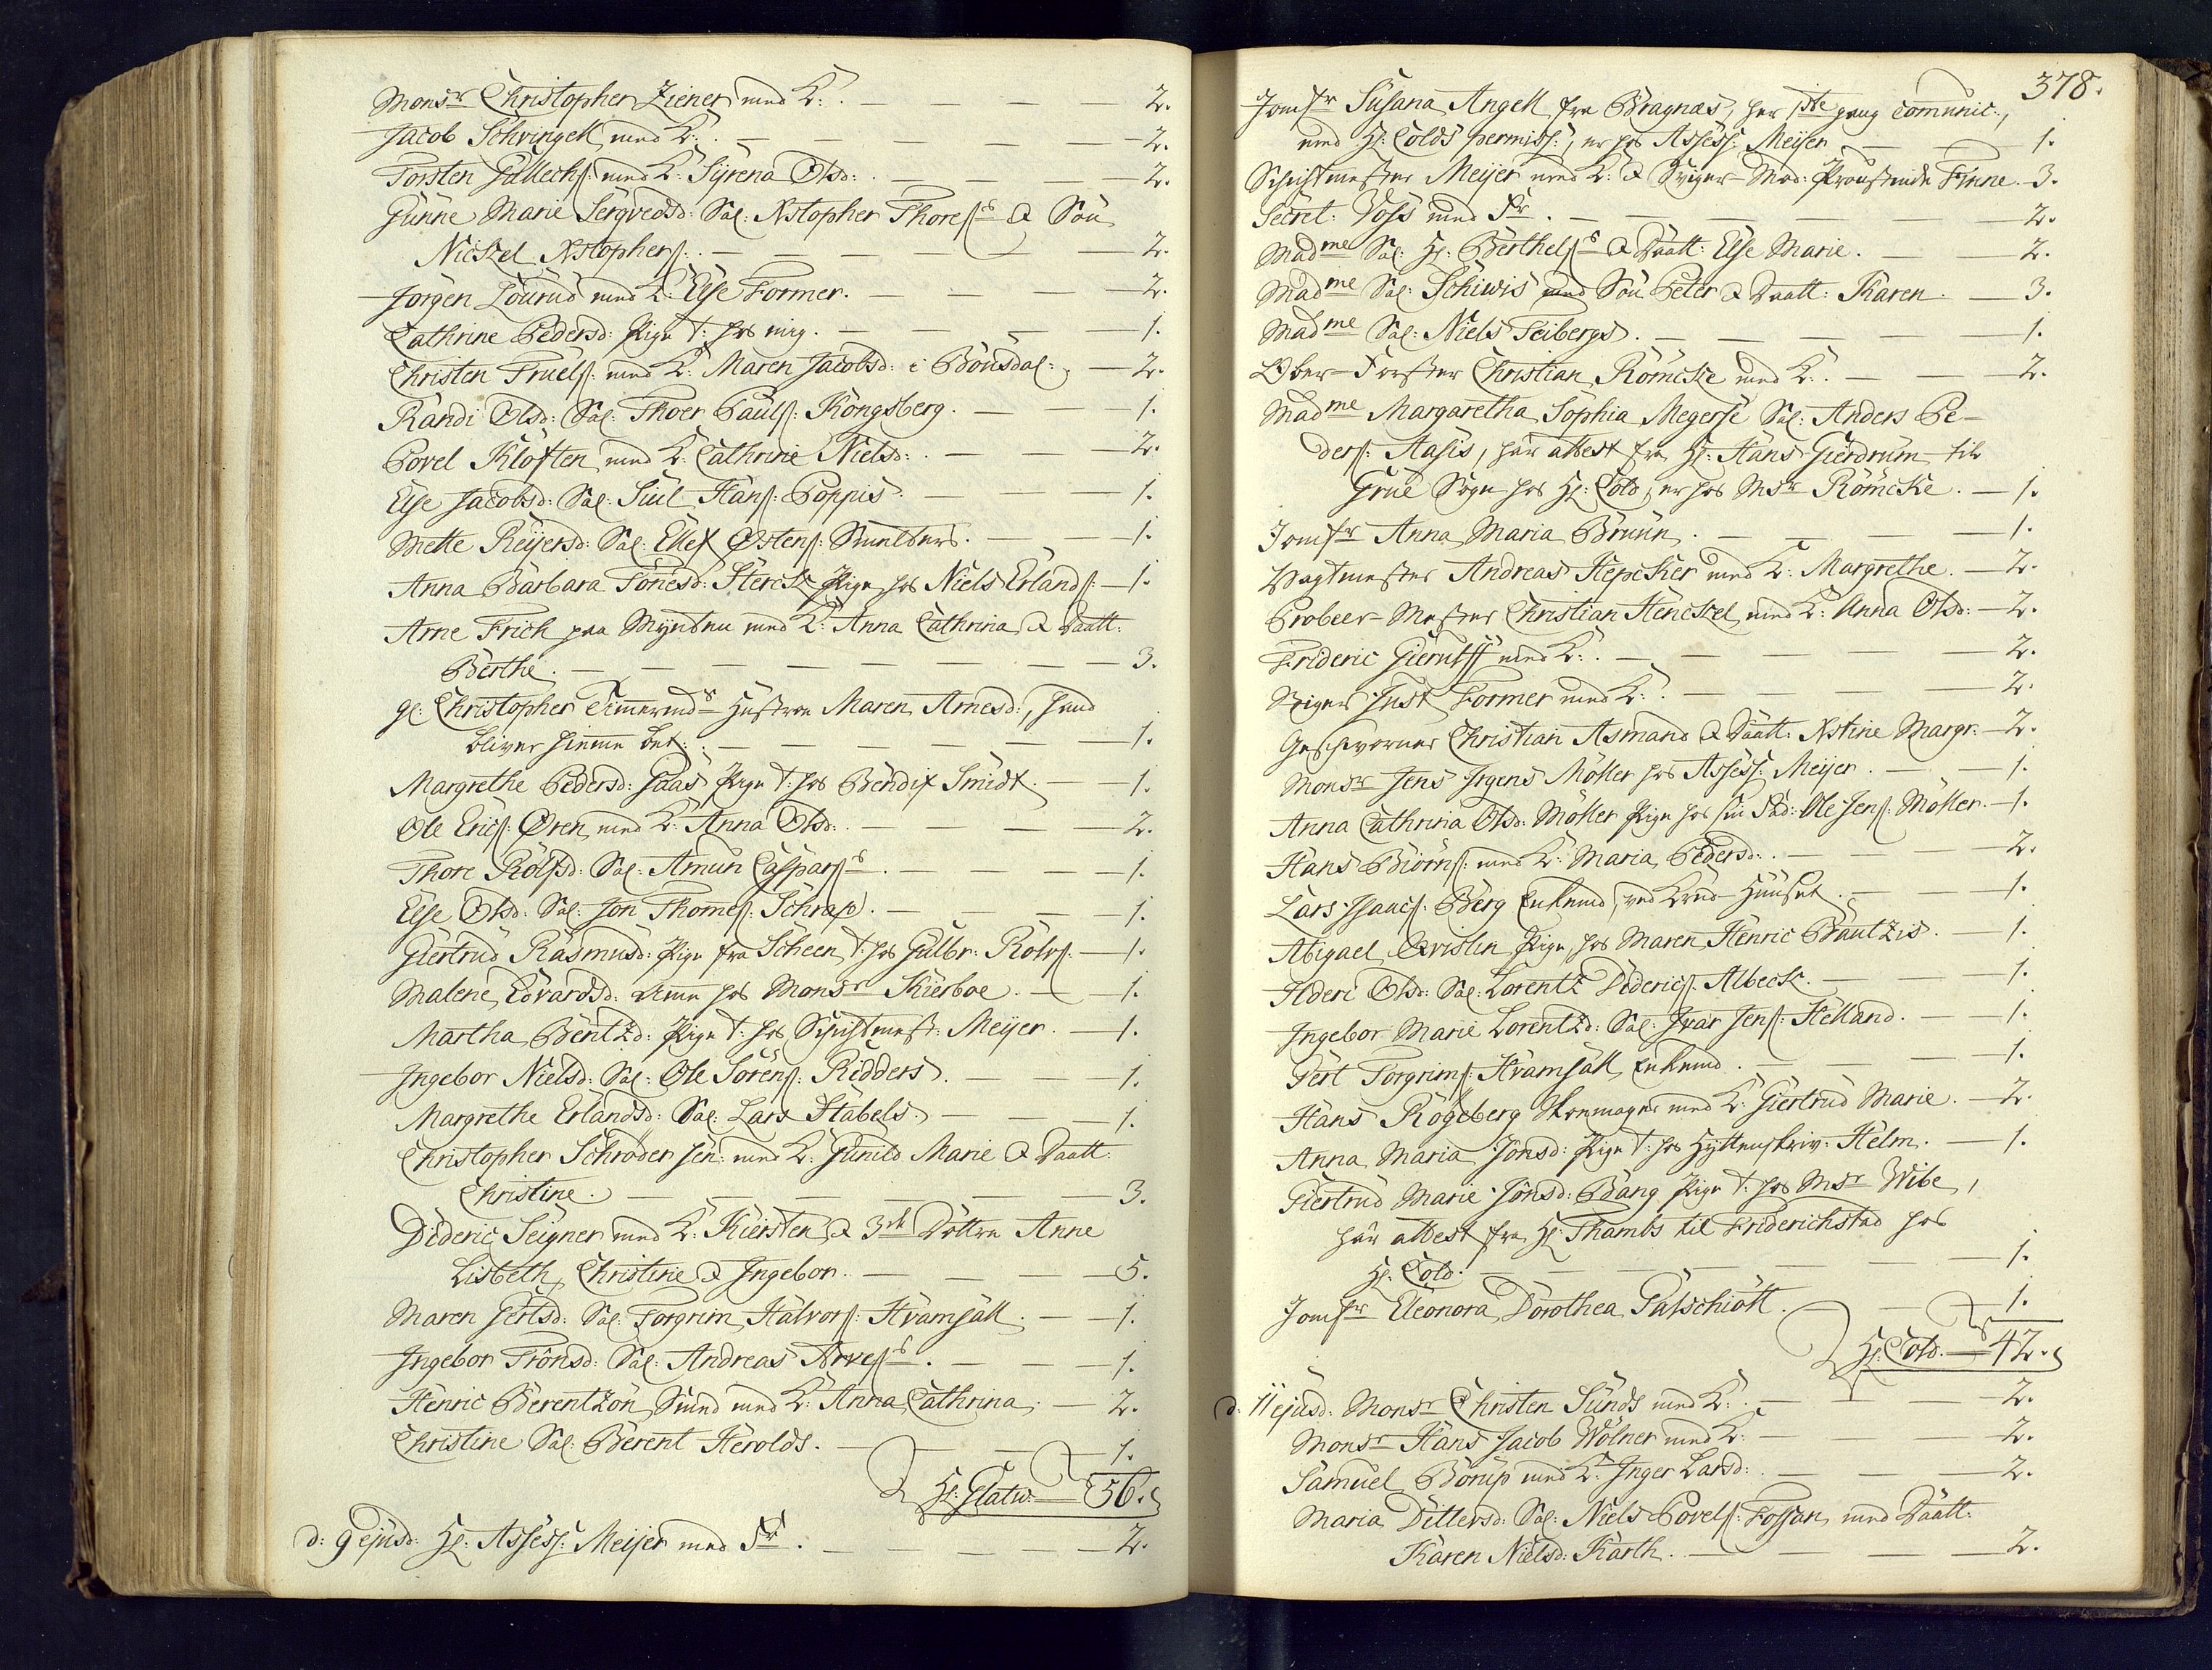 Monsr Christopher Ziener med K: . — — — 2.
Jacob Schvingell med K: . — — — — 2.
Torsten Gullechs: med K: Syrena Olsd: . — — — 2.
Gunne Marie Sergvedsd: Sal: Xstopher Thoress & Søn
Nickel Xstophers: . — — — — 2.
Jørgen Lourud med K: Else Former. — — — 2.
Cathrine Pedersd: Pige t: hos mig. — — — 1.
Christen Truels: med K: Maren Jacobsd: i Bønsdal: . — 2.
Randi Olsd: Sal: Thoer Pauls: Kongsberg. — — 1.
Povel Kløften med K: Cathrine Nielsd: . — — 2.
Else Jacobsd: Sal: Siul Hans: Poppis. — — — 1.
Mette Reijersd: Sal: Ellef Østens: Smelters. — — 1.
Anna Barbara Tønesd: Sterck Pige hos Niels Erlands: — 1.
Arne Frich paa Mynten med K: Anna Cathrina & Daatt:
Berthe. — — — — — — — 3.
gl: Christopher Timermds Hustroe Maren Arnesd:, hand
bliver hieme bet: . — — — — — 1.
Margrethe Pedersd: Haas Pige t: hos Bendix Smidt. — — 1.
Ole Erics: Øren med K: Anna Olsd: . — — — 2.
Thore Rolfsd: Sal: Amun Caspars s. — — — 1.
Else Olsd: Sal: Jon Thomes: Schrap. — — — 1.
Giertrud Rasmusd: Pige fra Scheen t: hos Gulbr: Rolvs: — 1.
Malene Edvardsd: Amme hos Monsr Kierboe. — — 1.
Martha Bentzd: Pige t: hos Schichtmest: Meijer. — 1.
Ingebor Nielsd: Sal: Ole Sørens: Ridders. — — 1.
Margrethe Erlandsd: Sal: Lars Stabels. — — — 1.
Christopher Schrøder sen: med K: Gunild Marie & Daatt:
Christine. — — — — — 3.
Dideric Seigner med K: Kiersten & 3de Døttre Anne
Lisbeth, Christine & Ingebor. — — — — 5.
Maren Gertsd: Sal: Torgrim Halvors: Hvamsall. — — 1.
Ingebor Trønsd: Sal: Andreas Arves s. — — — 1.
Henric Berentzøn Smed med K: Anna Cathrina. — 2.
Christine Sal: Berent Herolds. — — 1.
Hr: Glatw: — 56.
d: 9 ejusd: Hr: Assess: Meijer med Fr. — — — — 2.
378.
Jomfr Susana Angell fra Bragnæs, her 1ste gang comunic:,
med Hr: Colds permiss:, er hos Assess: Meijer — — 1.
Schichtmester Meijer med K: & Sviger-Mod: Proustinde Finne. 3.
Secret: Voss med Fr. — — — — 2.
Madme Sal: Hr: Berthels s & Daatt: Else Marie. — — 2.
Madme Sal: Schiwis med Søn Peter & Daatt: Karen. — 3.
Madme Sal: Niels Feibergs. — — — — 1.
Ober-Forster Christian Römcke med K: . — — 2.
Madme Margaretha Sophia Megerse Sal: Anders Pe-
ders: Aasis, har attest fra Hr: Hans Gierdrum til
Grue Sogn hos Hr: Cold, er hos Msr Römcke. — 1.
Jomfr Anna Maria Bruun. — — — — 1.
Vagtmester Andreas Hepcker med K: Margrethe. — 2.
Probeer-Mester Christian Henckel med K: Anna Olsd: — 2.
Frideric Gierutff med K: . — — — — 2.
Stiger Just Former med K: . — — — — 2.
Geschworner Christian Asmand & Daatt: Xstine Margr: — 2.
Monsr Jens Jrgens Møller hos Assess: Meijer. — — 1.
Anna Cathrina Olsd: Møller Pige hos sin Fad: Ole Jens: Møller. — 1.
Hans Biørns: med K: Maria Pedersd: . — — — 2.
Lars Isaacs: Berg Enkemd, ved Krud-Huuset. — — 1.
Abigael Qvislin Pige hos Maren Henric Bautzis. — 1.
Ilderi Olsd: Sal: Lorentz Diderics: Albeck. — — 1.
Ingebor Marie Lorentzd: Sal: Ivar Jens: Helland. — — 1.
Gert Torgrims: Hvamsall Enkemd. — — — 1.
Hans Rogeberg Skomager med K: Giertrud Marie. — 2.
Anna Maria Jonsd: Pige t: hos Hytteskriv: Helm. — 1.
Giertrud Marie Jonsd: Bang Pige t: hos Msr Wibe,
har attest fra Hr: Thambs til Friderichstad hos
Hr: Cold. — — — — — 1.
Jomfr Eleonora Dorothea Patschiött. — — 1.
Hr: Cold. — 42.
d: 11 ejusd: Monsr Christen Sunds med K: . — — — 2.
Monsr Hans Jacob Wølner med K: — — — 2.
Samuel Borup med K: Inger Larsd: . — — — 2.
Maria Dittersd: Sal: Niels Povels: Fossan med Daatt:
Karen Nielsd: Karth. — — — 2.